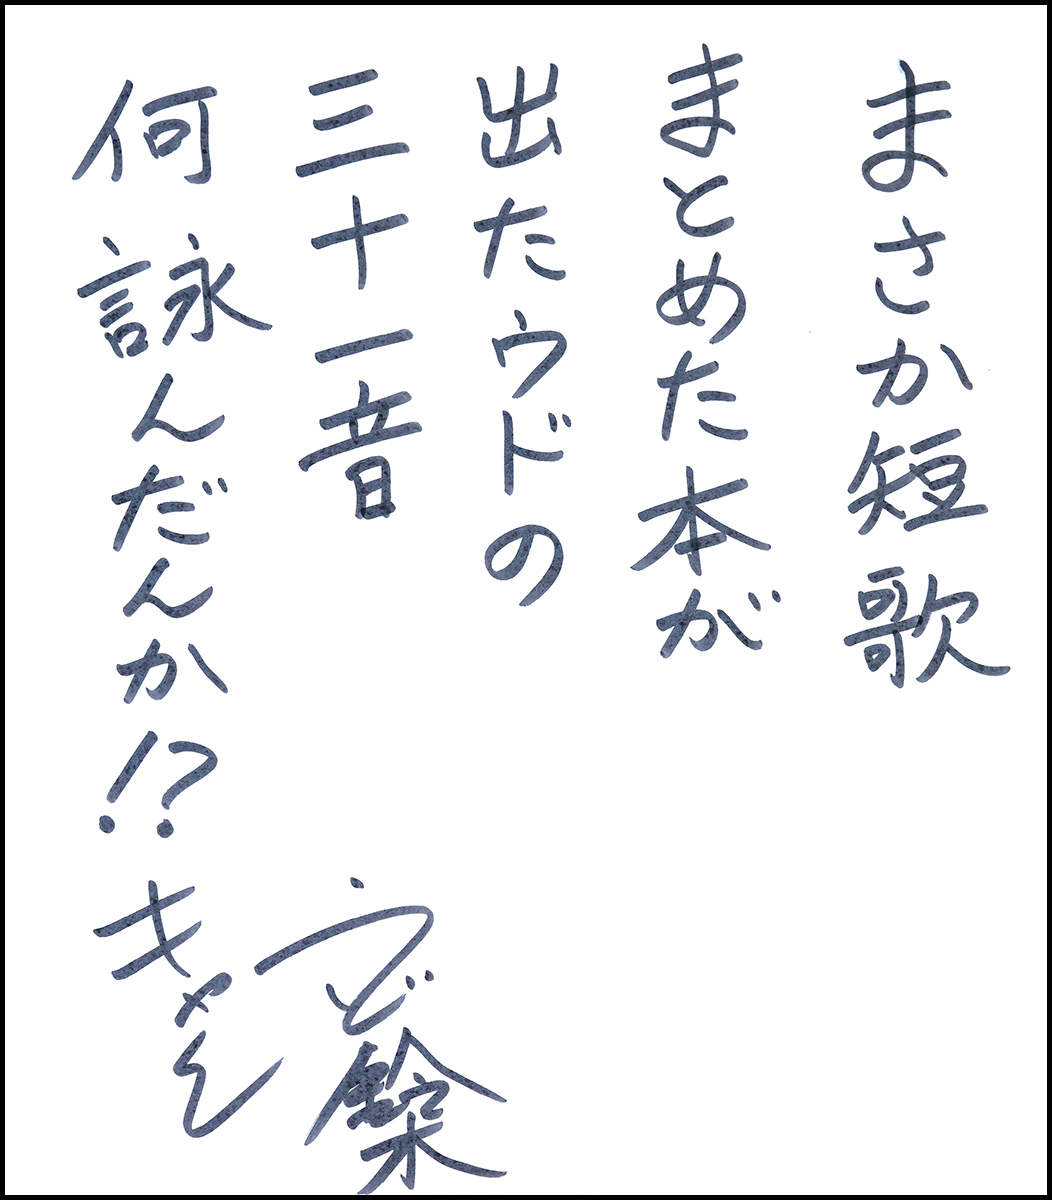 まさか短歌
まとめた本が
出たウドの
三十一音
何詠んだんか!?
うど鈴木
キャん